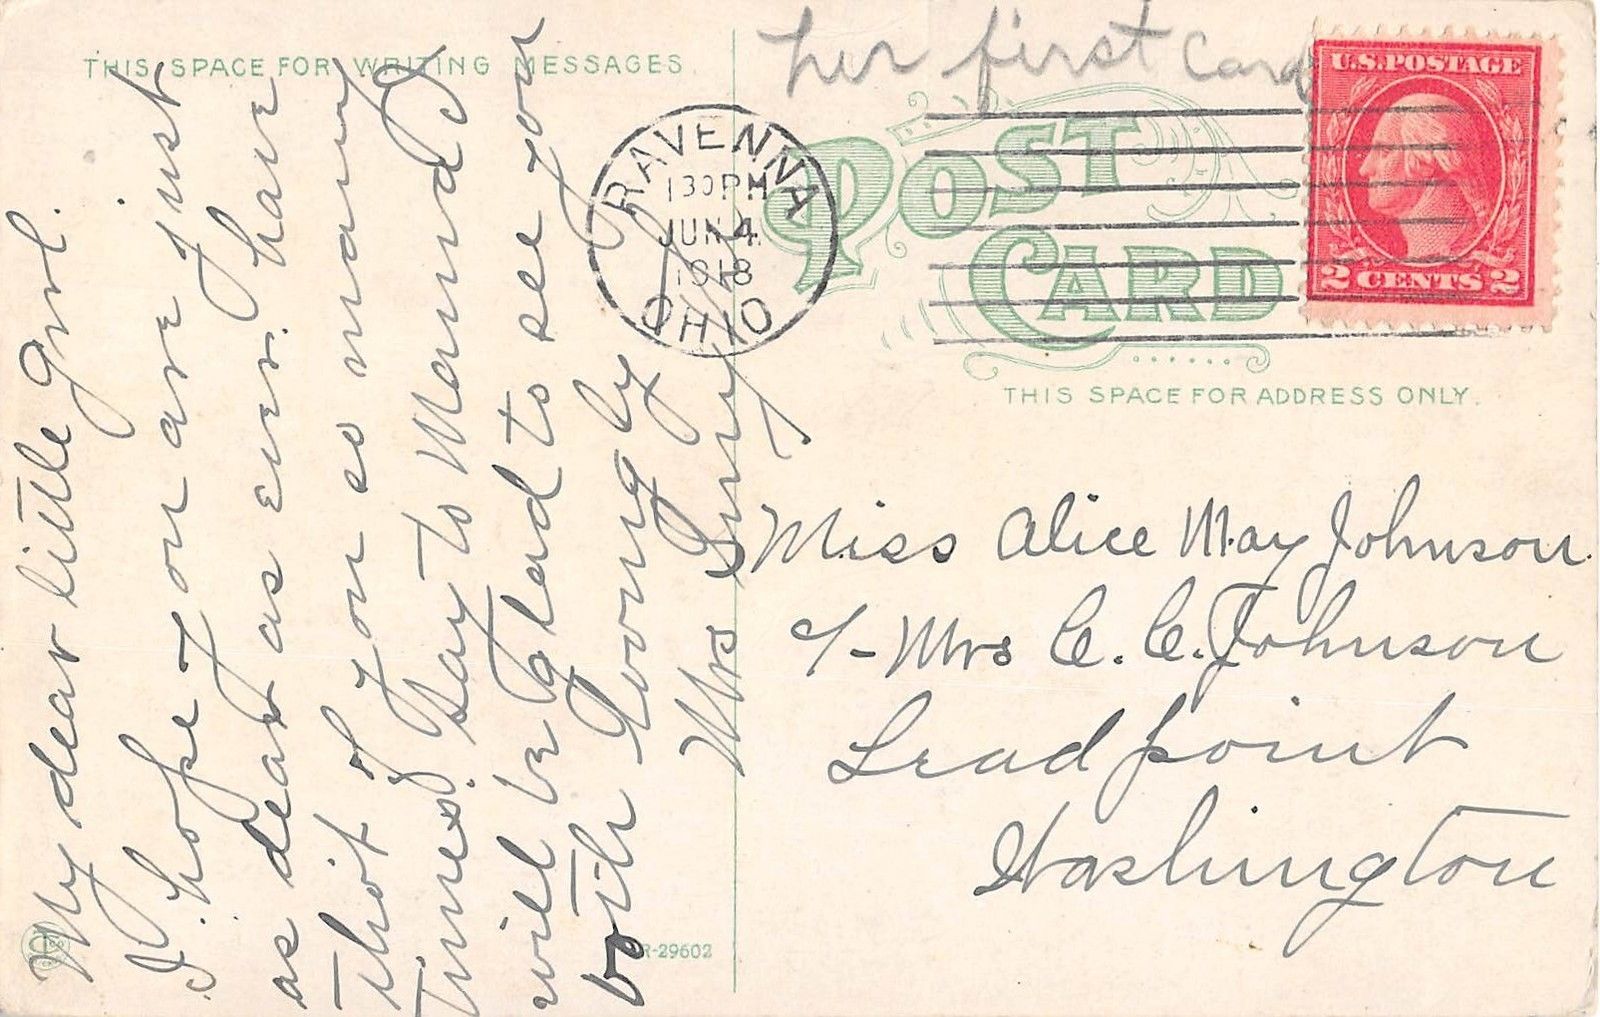 THIS SPACE FOR WRITING MESSAGES
My dear little Girl.
I hope you are just
as dear as ever. have
thot of you so many
times. Say to Mamma I
will be glad to see you
both Lovingly
Mrs
her first card
RAVENNA
130PM
JUN 4
1918
OHIO
POST
CARD
U.S. POSTAGE
2 CENTS 2
THIS SPACE FOR ADDRESS ONLY.
Miss Alice May Johnson.
c/- Mrs C. C. Johnson
Leadpoint
Washington
R-29602